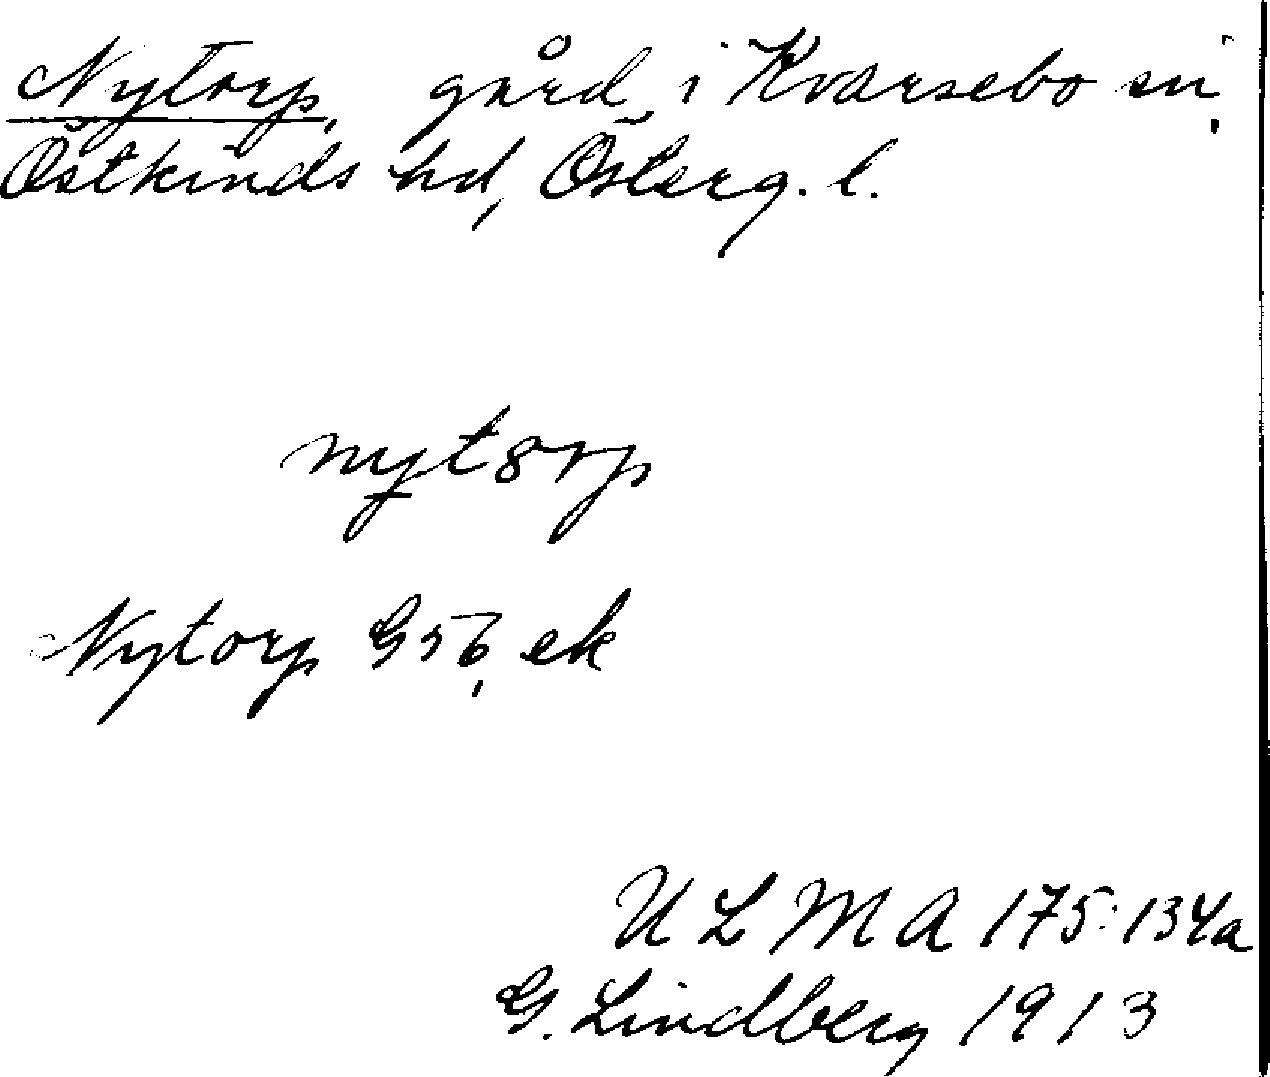 Nytorp, gård, i Kvarsebo sn,
Östkinds hd, Österg. l.
nytorp
Nytorp G 56, ek
U L M A 175:134a
G. Lindberg 1913